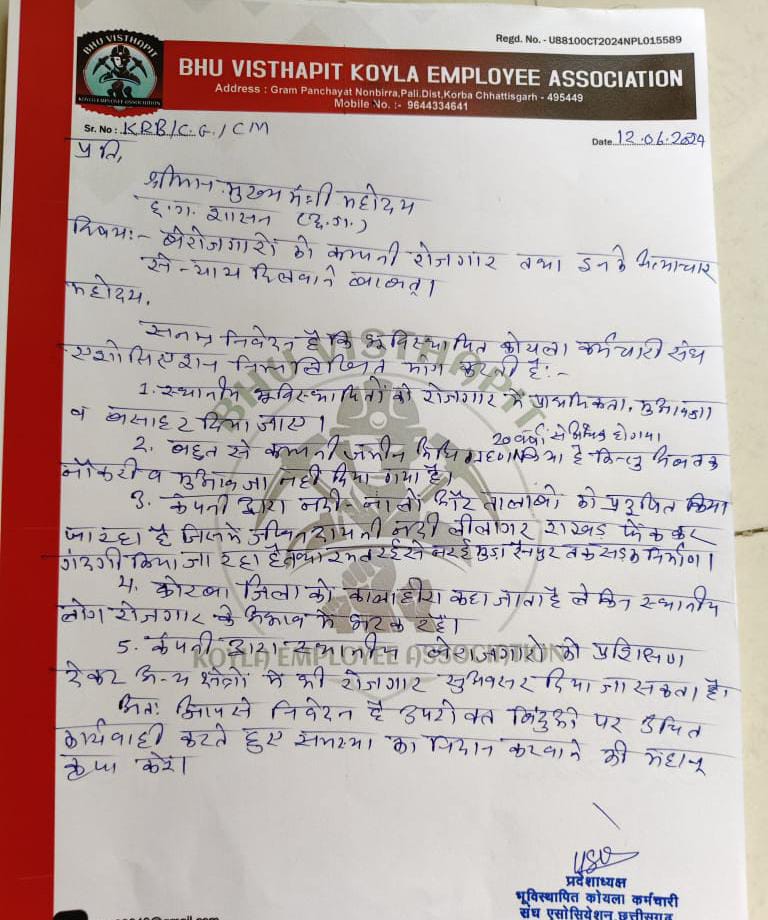 Regd. No. - U88100CT2024NPL015589
BHU VISTHAPIT
KOYLA EMPLOYEE ASSOCIATION
BHU VISTHAPIT KOYLA EMPLOYEE ASSOCIATION
Address : Gram Panchayat Nonbirra,Pali.Dist,Korba Chhattisgarh - 495449
Mobile No. :- 9644334641
Sr. No : KRB/C.G./CM
Date 12.06.2024
प्रति,
श्रीमान मुख्यमंत्री महोदय
छ.ग. शासन (छ.ग.)
विषय:- बेरोजगारों को कम्पनी रोजगार तथा इनके अत्याचार
से न्याय दिलवाने बाबत्।
महोदय,
सनम्र निवेदन है कि भूविस्थापित कोयला कर्मचारी संघ
एशोसिएशन निम्नलिखित मांग करती है:-
1. स्थानीय भूविस्थापितों को रोजगार में प्राथमिकता, मुआवजा
व बसाहट दिया जाए।
20 वर्षो से अधिक हो गया
2. बहुत से कम्पनी जमीन अधिग्रहण किया है किन्तु अब तक
नौकरी व मुआवजा नही दिया गया है।
3. कंपनी द्वारा नदी-नालों और तालाबो को प्रदुषित किया
जा रहा है जिसमें जीवनदायनी नदी लीलागर राखड़ फेंककर
गंदगी किया जा रहा है तथा सड़क निर्माण।
4. कोरबा जिला को काला हीरा कहा जाता है लेकिन स्थानीय
लोग रोजगार के अभाव में भटक रहे।
5. कंपनी द्वारा स्थानीय बेरोजगारों को प्रशिक्षण
देकर अन्य क्षेत्रों में भी रोजगार सुअवसर दिया जा सकता है।
अतः आपसे निवेदन है उपरोक्त बिंदुओं पर उचित
कार्यवाही करते हुए समस्या का निदान करवाने की महान्
कृपा करें।
BHU VISTHAPIT
KOYLA EMPLOYEE ASSOCIATION
प्रदेशाध्यक्ष
भूविस्थापित कोयला कर्मचारी
संघ एसोसियेशन छत्तीसगढ़